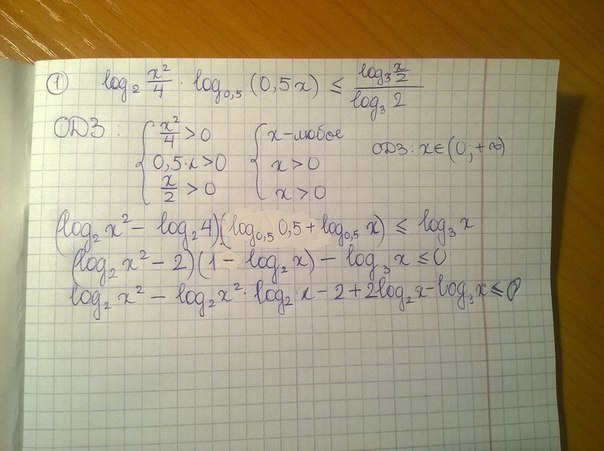 ① log₂ x²/4 · log₀,₅ (0,5x) ≤ log₃ x/2 / log₃ 2
ОДЗ: { x²/4 > 0 { x – любое
0,5·x > 0 x > 0 ОДЗ: x ∈ (0; +∞)
x/2 > 0 x > 0
(log₂ x² – log₂ 4)(log₀,₅ 0,5 + log₀,₅ x) ≤ log₃ x
(log₂ x² – 2)(1 – log₂ x) – log₃ x ≤ 0
log₂ x² – log₂ x² · log₂ x – 2 + 2log₂ x – log₃ x ≤ 0